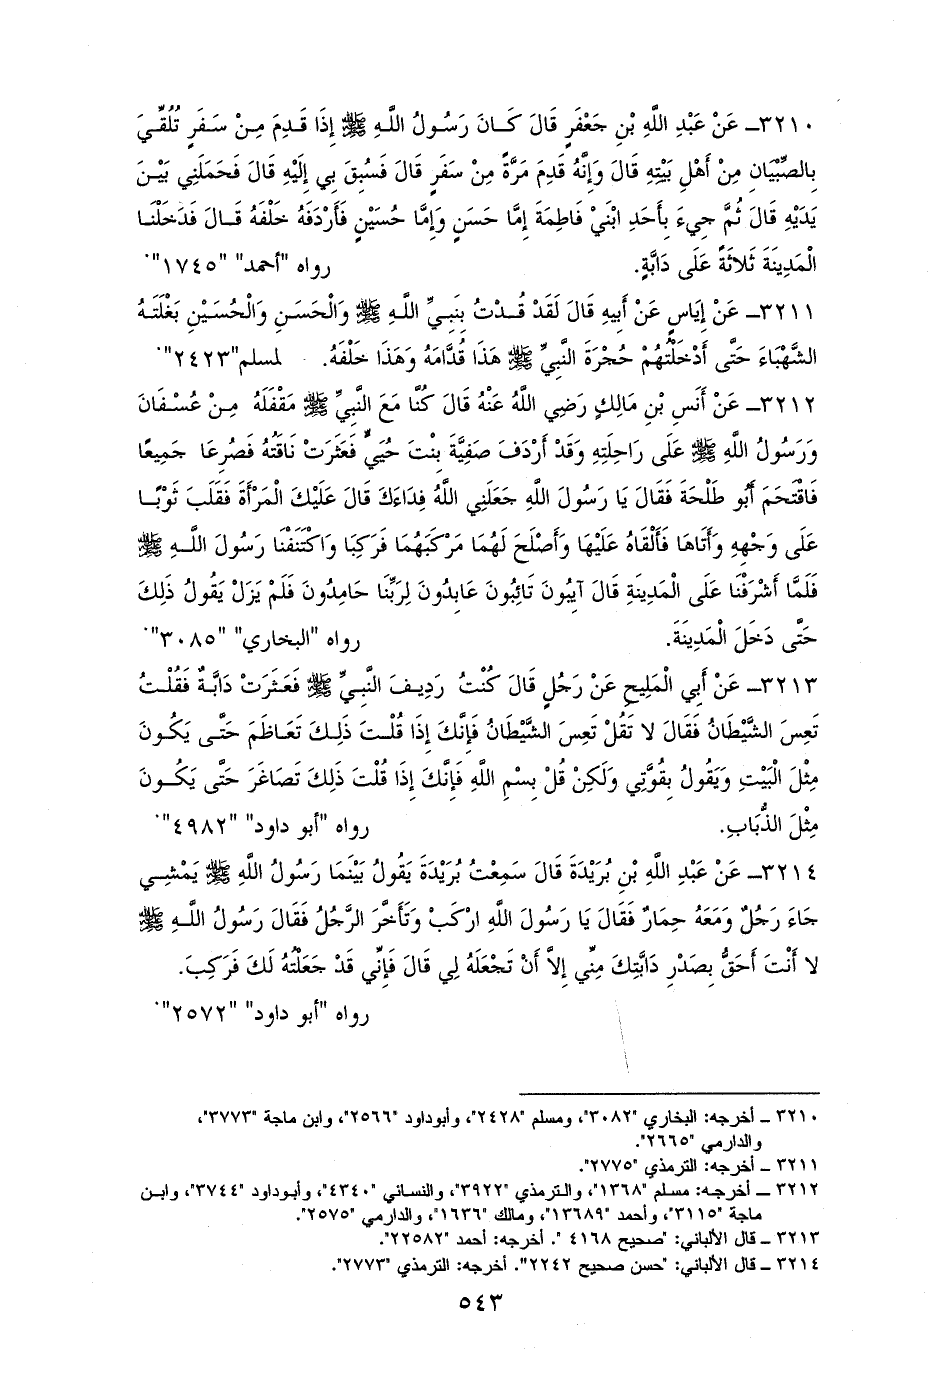 ٣٢١٠ـ عَنْ عَبْدِ اللَّهِ بْنِ جَعْفَرٍ قَالَ كَانَ رَسُولُ اللَّهِ ﷺ إِذَا قَدِمَ مِنْ سَفَرٍ تُلُقِّيَ
بِالصِّبْيَانِ مِنْ أَهْلِ بَيْتِهِ قَالَ وَإِنَّهُ قَدِمَ مَرَّةً مِنْ سَفَرٍ قَالَ فَسُبِقَ بِي إِلَيْهِ قَالَ فَحَمَلَنِي بَيْنَ
يَدَيْهِ قَالَ ثُمَّ جِيءَ بِأَحَدِ ابْنَيْ فَاطِمَةَ إِمَّا حَسَنٍ وَإِمَّا حُسَيْنٍ فَأَرْدَفَهُ خَلْفَهُ قَالَ فَدَخَلْنَا
الْمَدِينَةَ ثَلاثَةً عَلَى دَابَّةٍ. رواه "أحمد" "١٧٤٥".
٣٢١١ـ عَنْ إِيَاسٍ عَنْ أَبِيهِ قَالَ لَقَدْ قُدْتُ بِنَبِيِّ اللَّهِ ﷺ وَالْحَسَنِ وَالْحُسَيْنِ بَغْلَتَهُ
الشَّهْبَاءَ حَتَّى أَدْخَلْتُهُمْ حُجْرَةَ النَّبِيِّ ﷺ هَذَا قُدَّامَهُ وَهَذَا خَلْفَهُ. لمسلم"٢٤٢٣".
٣٢١٢ـ عَنْ أَنَسِ بْنِ مَالِكٍ رَضِي اللَّهُ عَنْهُ قَالَ كُنَّا مَعَ النَّبِيِّ ﷺ مَقْفَلَهُ مِنْ عُسْفَانَ
وَرَسُولُ اللَّهِ ﷺ عَلَى رَاحِلَتِهِ وَقَدْ أَرْدَفَ صَفِيَّةَ بِنْتَ حُيَيٍّ فَعَثَرَتْ نَاقَتُهُ فَصُرِعَا جَمِيعًا
فَاقْتَحَمَ أَبُو طَلْحَةَ فَقَالَ يَا رَسُولَ اللَّهِ جَعَلَنِي اللَّهُ فِدَاءَكَ قَالَ عَلَيْكَ الْمَرْأَةَ فَقَلَبَ ثَوْبًا
عَلَى وَجْهِهِ وَأَتَاهَا فَأَلْقَاهُ عَلَيْهَا وَأَصْلَحَ لَهُمَا مَرْكَبَهُمَا فَرَكِبَا وَاكْتَنَفْنَا رَسُولَ اللَّهِ ﷺ
فَلَمَّا أَشْرَفْنَا عَلَى الْمَدِينَةِ قَالَ آيِبُونَ تَائِبُونَ عَابِدُونَ لِرَبِّنَا حَامِدُونَ فَلَمْ يَزَلْ يَقُولُ ذَلِكَ
حَتَّى دَخَلَ الْمَدِينَةَ. رواه "البخاري" "٣٠٨٥".
٣٢١٣ـ عَنْ أَبِي الْمَلِيحِ عَنْ رَجُلٍ قَالَ كُنْتُ رَدِيفَ النَّبِيِّ ﷺ فَعَثَرَتْ دَابَّةٌ فَقُلْتُ
تَعِسَ الشَّيْطَانُ فَقَالَ لا تَقُلْ تَعِسَ الشَّيْطَانُ فَإِنَّكَ إِذَا قُلْتَ ذَلِكَ تَعَاظَمَ حَتَّى يَكُونَ
مِثْلَ الْبَيْتِ وَيَقُولُ بِقُوَّتِي وَلَكِنْ قُلْ بِسْمِ اللَّهِ فَإِنَّكَ إِذَا قُلْتَ ذَلِكَ تَصَاغَرَ حَتَّى يَكُونَ
مِثْلَ الذُّبَابِ. رواه "أبو داود" "٤٩٨٢".
٣٢١٤ـ عَنْ عَبْدِ اللَّهِ بْنِ بُرَيْدَةَ قَالَ سَمِعْتُ بُرَيْدَةَ يَقُولُ بَيْنَمَا رَسُولُ اللَّهِ ﷺ يَمْشِي
جَاءَ رَجُلٌ وَمَعَهُ حِمَارٌ فَقَالَ يَا رَسُولَ اللَّهِ ارْكَبْ وَتَأَخَّرَ الرَّجُلُ فَقَالَ رَسُولُ اللَّهِ ﷺ
لا أَنْتَ أَحَقُّ بِصَدْرِ دَابَّتِكَ مِنِّي إِلاَّ أَنْ تَجْعَلَهُ لِي قَالَ فَإِنِّي قَدْ جَعَلْتُهُ لَكَ فَرَكِبَ.
رواه "أبو داود" "٢٥٧٢".
٣٢١٠ ـ أخرجه: البخاري "٣٠٨٢"، ومسلم "٢٤٢٨"، وأبوداود "٢٥٦٦"، وابن ماجة "٣٧٧٣"،
والدارمي "٢٦٦٥".
٣٢١١ ـ أخرجه: الترمذي "٢٧٧٥".
٣٢١٢ ـ أخرجه: مسلم "١٣٦٨"، والترمذي "٣٩٢٢"، والنساني "٤٣٤٠"، وأبوداود "٣٧٤٤"، وابن
ماجة "٣١١٥"، وأحمد "١٣٦٨٩"، ومالك "١٦٣٦"، والدارمي "٢٥٧٥".
٣٢١٣ ـ قال الألباني: "صحيح ٤١٦٨ ". أخرجه: أحمد "٢٢٥٨٢".
٣٢١٤ ـ قال الألباني: "حسن صحيح ٢٢٤٢". أخرجه: الترمذي "٢٧٧٣".
٥٤٣